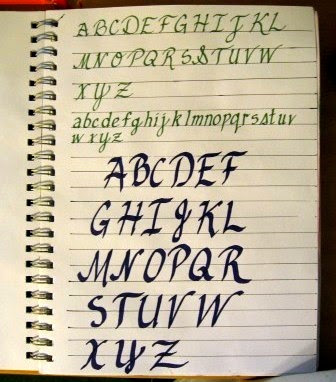 ABCDEFGHIJKL
MNOPQRSSTUVW
XYZ
abcdefghijklmnopqrsstuv
wxyz
ABCDEF
GHIJKL
MNOPQR
STUVW
XYZ